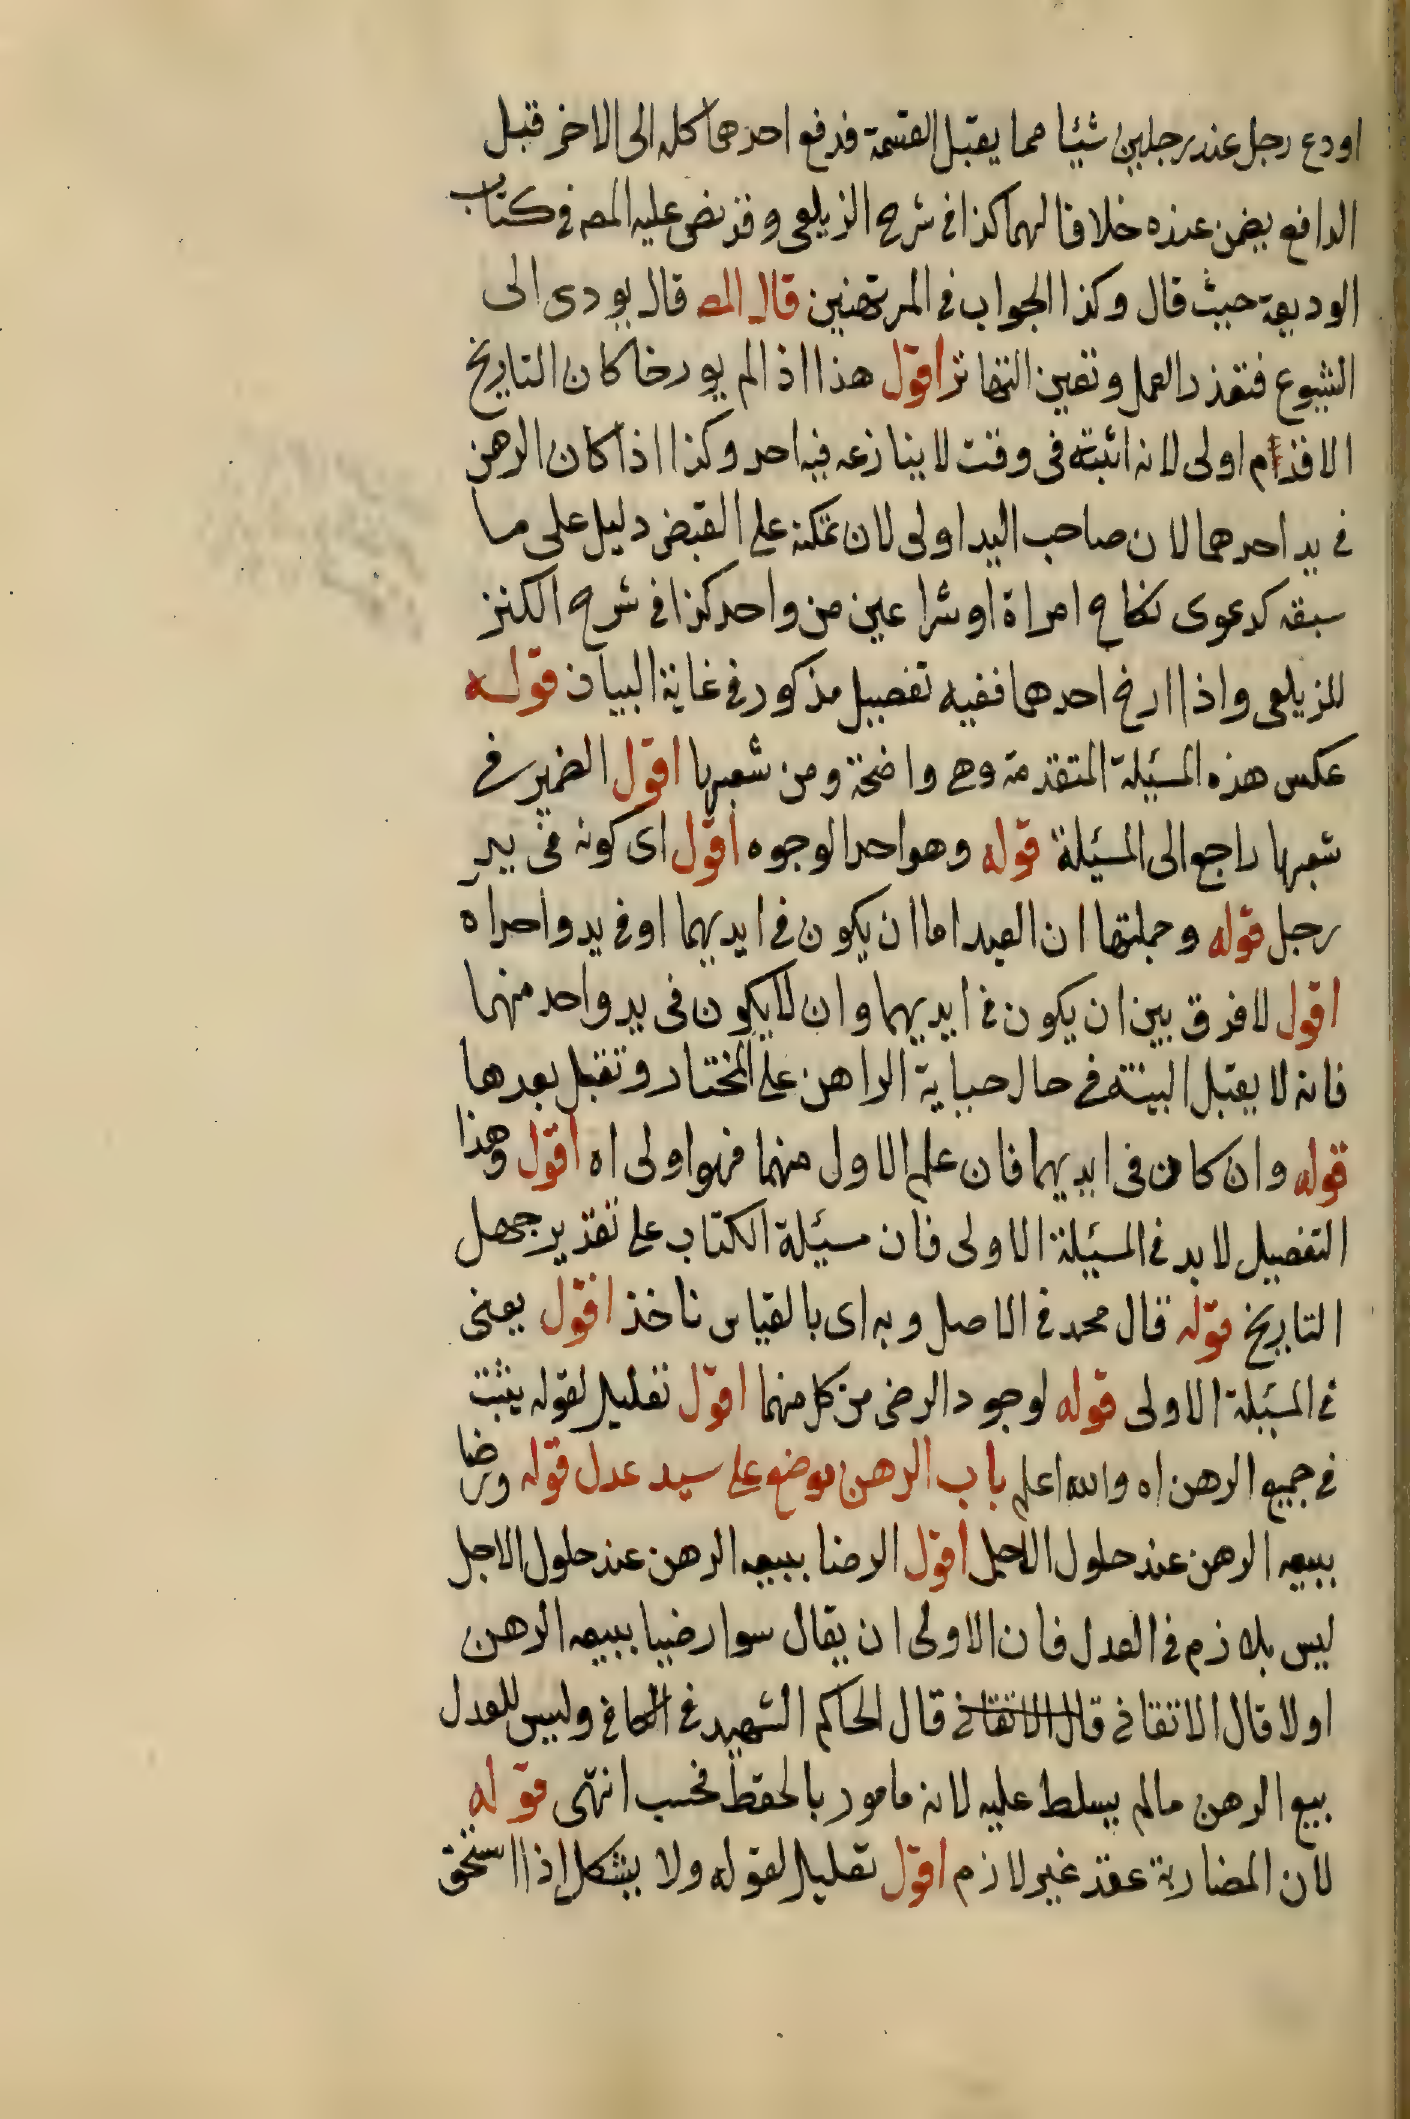 اودع رجل عند رجلين شيئا مما يقبل القسمة فدفع احدهما كله الى الاخر قبل
الدافع يضمن عنده خلافا لهما كذا في شرح الزيلعي وقد نص عليه المص في كتاب
الوديعة حيث قال وكذا الجواب في المرتهنين قال المص قال يودى الى
الشيوع فتعذر العمل وتعين التهاتر اقول هذا اذا لم يورخا كان التاريخ
الاقدم اولى لانه اثبته في وقت لا ينازعه فيه احد وكذا اذا كان الرهن
في يد احدهما لان صاحب اليد اولى لان تمكنه على القبض دليل على ما
سبقه كدعوى نكاح امراة او شرا عين من واحد كذا في شرح الكنز
للزيلعي واذا ارخ احدهما ففيه تفصيل مذكور في غاية البيان قوله
عكس هذه المسئلة المتقدمة وهي واضحة ومن شعبها اقول الضمير في
شعبها راجع الى المسئلة قوله وهو احد الوجوه اقول اى كونه في يد
رجل قوله وجملتها ان العبد اما ان يكون في ايديهما او في يد واحد اه
اقول لا فرق بين ان يكون في ايديهما وان لا يكون في يد واحد منهما
فانه لا يقبل البينة في حال حياية الراهن على المختار وتقبل بعدها
قوله وان كان في ايديهما فان علم الاول منهما فهو اولى اه اقول وهذا
التفصيل لا بد في المسئلة الاولى فان مسئلة الكتاب على تقدير جهل
التاريخ قوله قال محمد في الاصل وبه اى بالقياس ناخذ اقول يعنى
في المسئلة الاولى قوله لوجود الرضى من كل منهما اقول تعليل لقوله يثبت
في جميع الرهن اه والله اعلم باب الرهن يوضع على سيد عدل قوله ورضا
ببيعه الرهن عند حلول الاجل اقول الرضا ببيعه الرهن عند حلول الاجل
ليس بلازم في العدل فان الاولى ان يقال سوا رضيا ببيعه الرهن
اولا قال الاتقاني قال الاتقاني قال الحاكم الشهيد في الكافي وليس للعدل
بيع الرهن مالم يسلط عليه لانه مامور بالحفظ فحسب انتهى قوله
لان المضاربة عقد غير لازم اقول تعليل لقوله ولا يشكل اذا استحق